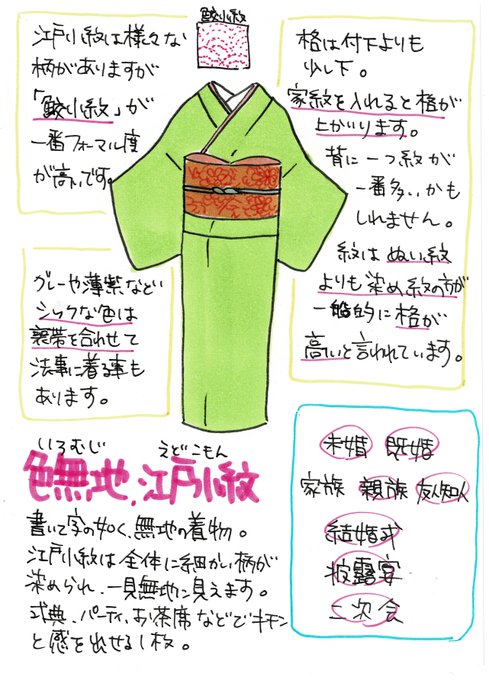 鮫小紋
江戸小紋は様々な
柄がありますが
「鮫小紋」が
一番フォーマル度
が高いです。
格は付下よりも
少し下。
家紋を入れると格が
上がります。
背に一つ紋が
一番多いかも
しれません。
紋はぬい紋
よりも染め紋の方が
一般的に格が
高いと言われています。
グレーや薄紫など
シックな色は
喪帯を合わせて
法事に着る事も
あります。
いろむじ えどこもん
色無地、江戸小紋
書いて字の如く、無地の着物。
江戸小紋は全体に細かい柄が
染められ、一見無地に見えます。
式典、パーティ、お茶席などでキチン
と感を出せる1枚。
未婚 既婚
家族 親族 友人知人
結婚式
披露宴
二次会